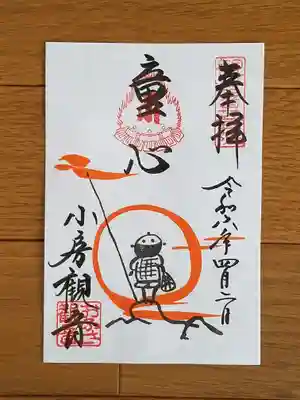 奉拝
令和六年四月二日
童心
小房観音